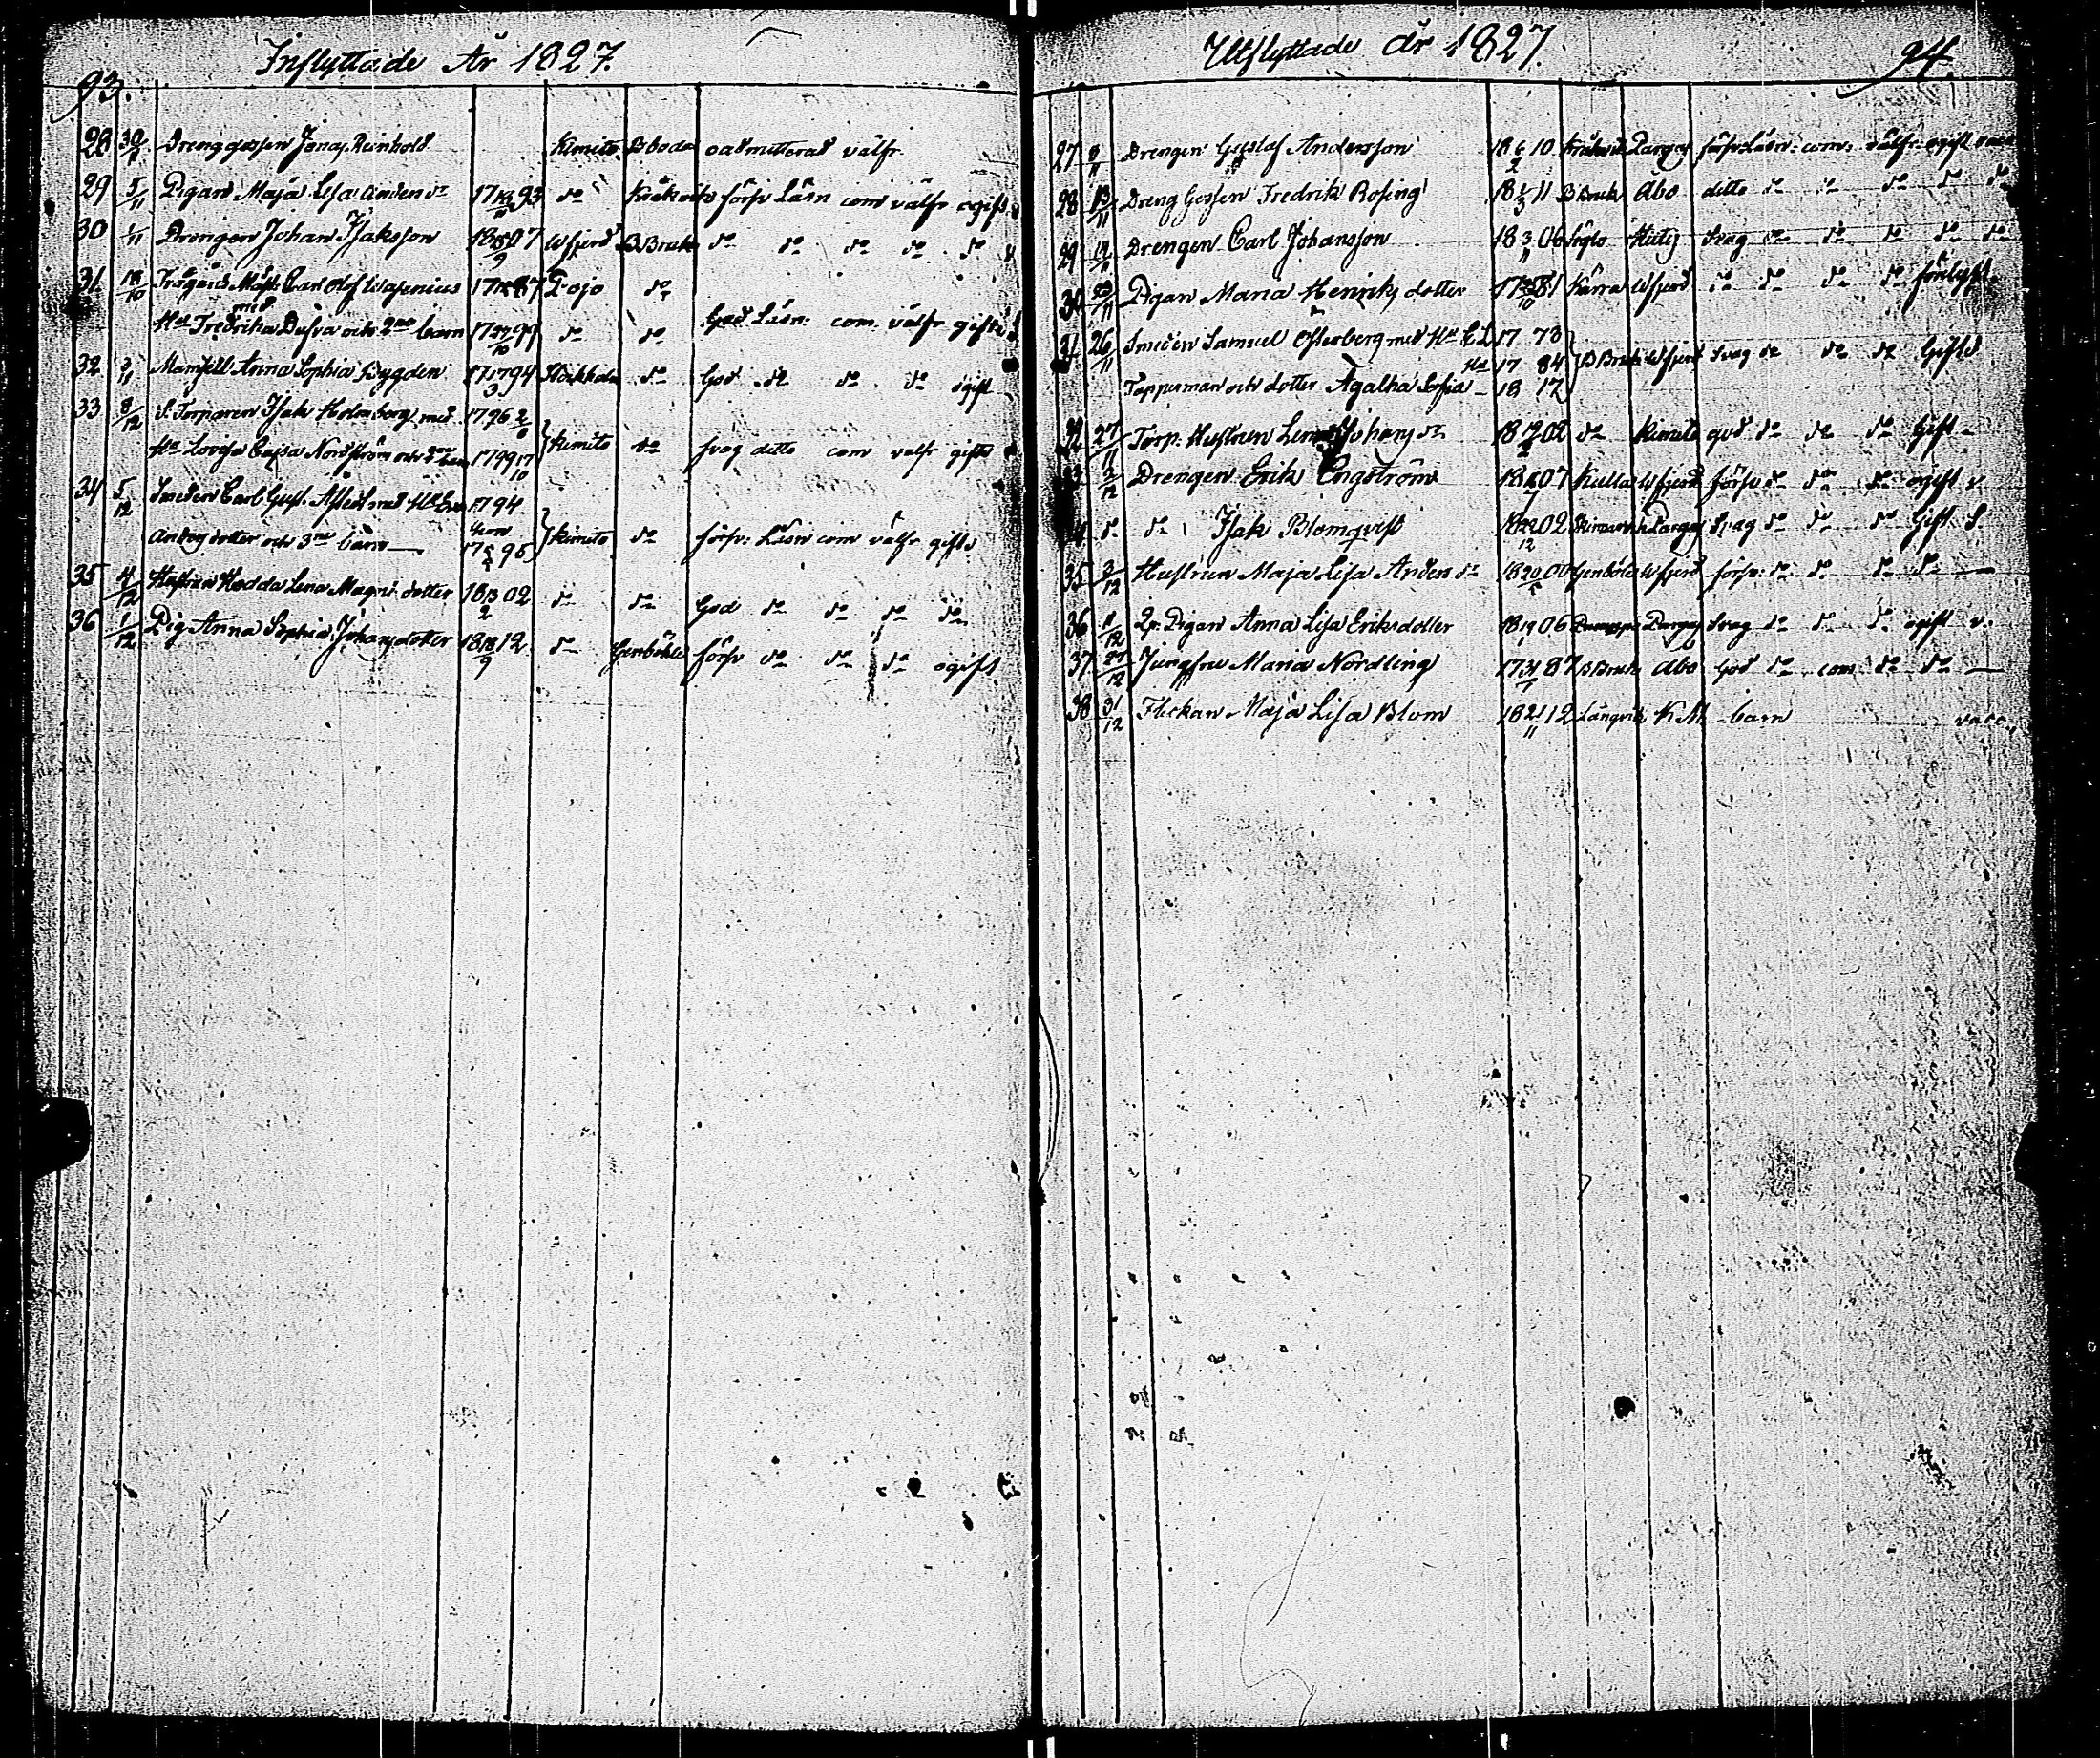 Inflyttade År 1827.
93.
28 30/11 Drenggossen Jonas Reinhold Kimito Bboda oadmitterad välfr.
29 5/11 Pigan Maja Lisa Anders dr 17 93 do Kråkvik försv Läsn com välfr ogift
30 1/11 Drengen Johan Isaksson 18 07 Wfjerd BBruk do do do do do v
31 18/10 Trägårds Mäst. Carl Olof Wasenius 17 87 Pojo do
med
Hu Fredrika Dufva och 2ne barn 17 27/10 99 do do God Läsn: com. välfr gifte
32 3/11 Mamsell Anna Sophia Bygden 17 17/3 94 do God do do do ogift
33 8/12 S: Torparen Isak Holmberg med 1796 2/6
Hu Lovisa Cajsa Nordström och barn 1799 17/10 Kimito do svag ditto com välfr gifte
34 5/12 Smeden Carl Gust. med Hu Eva 1794
Anders dotter och 3ne barn hon 17 95 Kimito do försv: Läsn com välfr gifte
35 4/12 Hustrun Hedda Lena Magnidotter 18 13/2 02 do do God do do do do
36 1/12 Pig Anna Sophia Johansdotter 18 18/9 12 do Genböhle försv do do do ogift
Utflyttade år 1827.
94.
27 8/11 Drengen Gustaf Andersson 18 6/2 10 Kråkvik Pargas försv: Läsn: com: välfr. ogift vacc
28 13/11 Dreng Gossen Fredrik Rosing 18 1/3 11 BBruk Åbo ditto do do do do do
29 19/11 Drengen Carl Johansson 18 3/11 06 Söglo Hitis Svag do do do do do
30 23/11 Pigan Maria Henriks dotter 17 81 Kärra Wfjerd do do do do
31 26/11 Smeden Samuel Österberg med Hu C L 17 73
Hu 17 84 BBruk Wfjerd Svag do do do Gifte
Toppisman och dotter Agatha Sofia 18 17
32 27/11 Torp. Hustrun Lena Johans dr 18 02 do Kimito god do do do Gift
33 3/12 Drengen Erik Engström 18 07 Kulla Wfjerd försv do do do ogift v
34 do do Isak Blomqvist 18 22/12 02 Pargas Svag do do do Gift
35 3/12 Hustrun Maja Lisa Anders dr 18 20 00 Genböle Wfjerd försv: do do do do
36 11/12 Qp. Pigan Anna Lisa Eriksdotter 18 19 06 Pargas Svag do do do ogift v.
37 27/12 Jungfru Maria Nordling 17 31/7 87 BBruk Åbo God do com do do
38 31/12 Flickan Maja Lisa Blom 18 21/11 12 Långvik K.M. barn vacc.